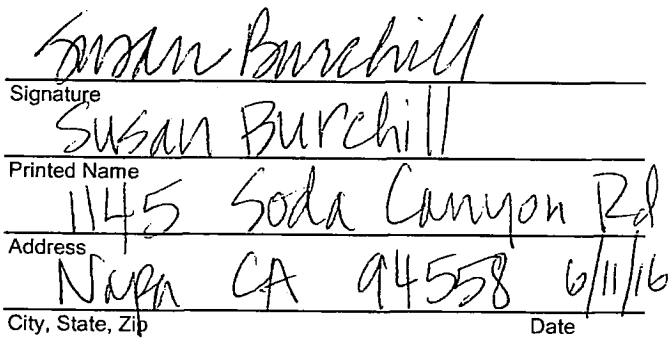 Susan Burchill
Signature
Susan Burchill
Printed Name
1145 Soda Canyon Rd
Address
Napa CA 94558 6/11/16
City, State, Zip Date